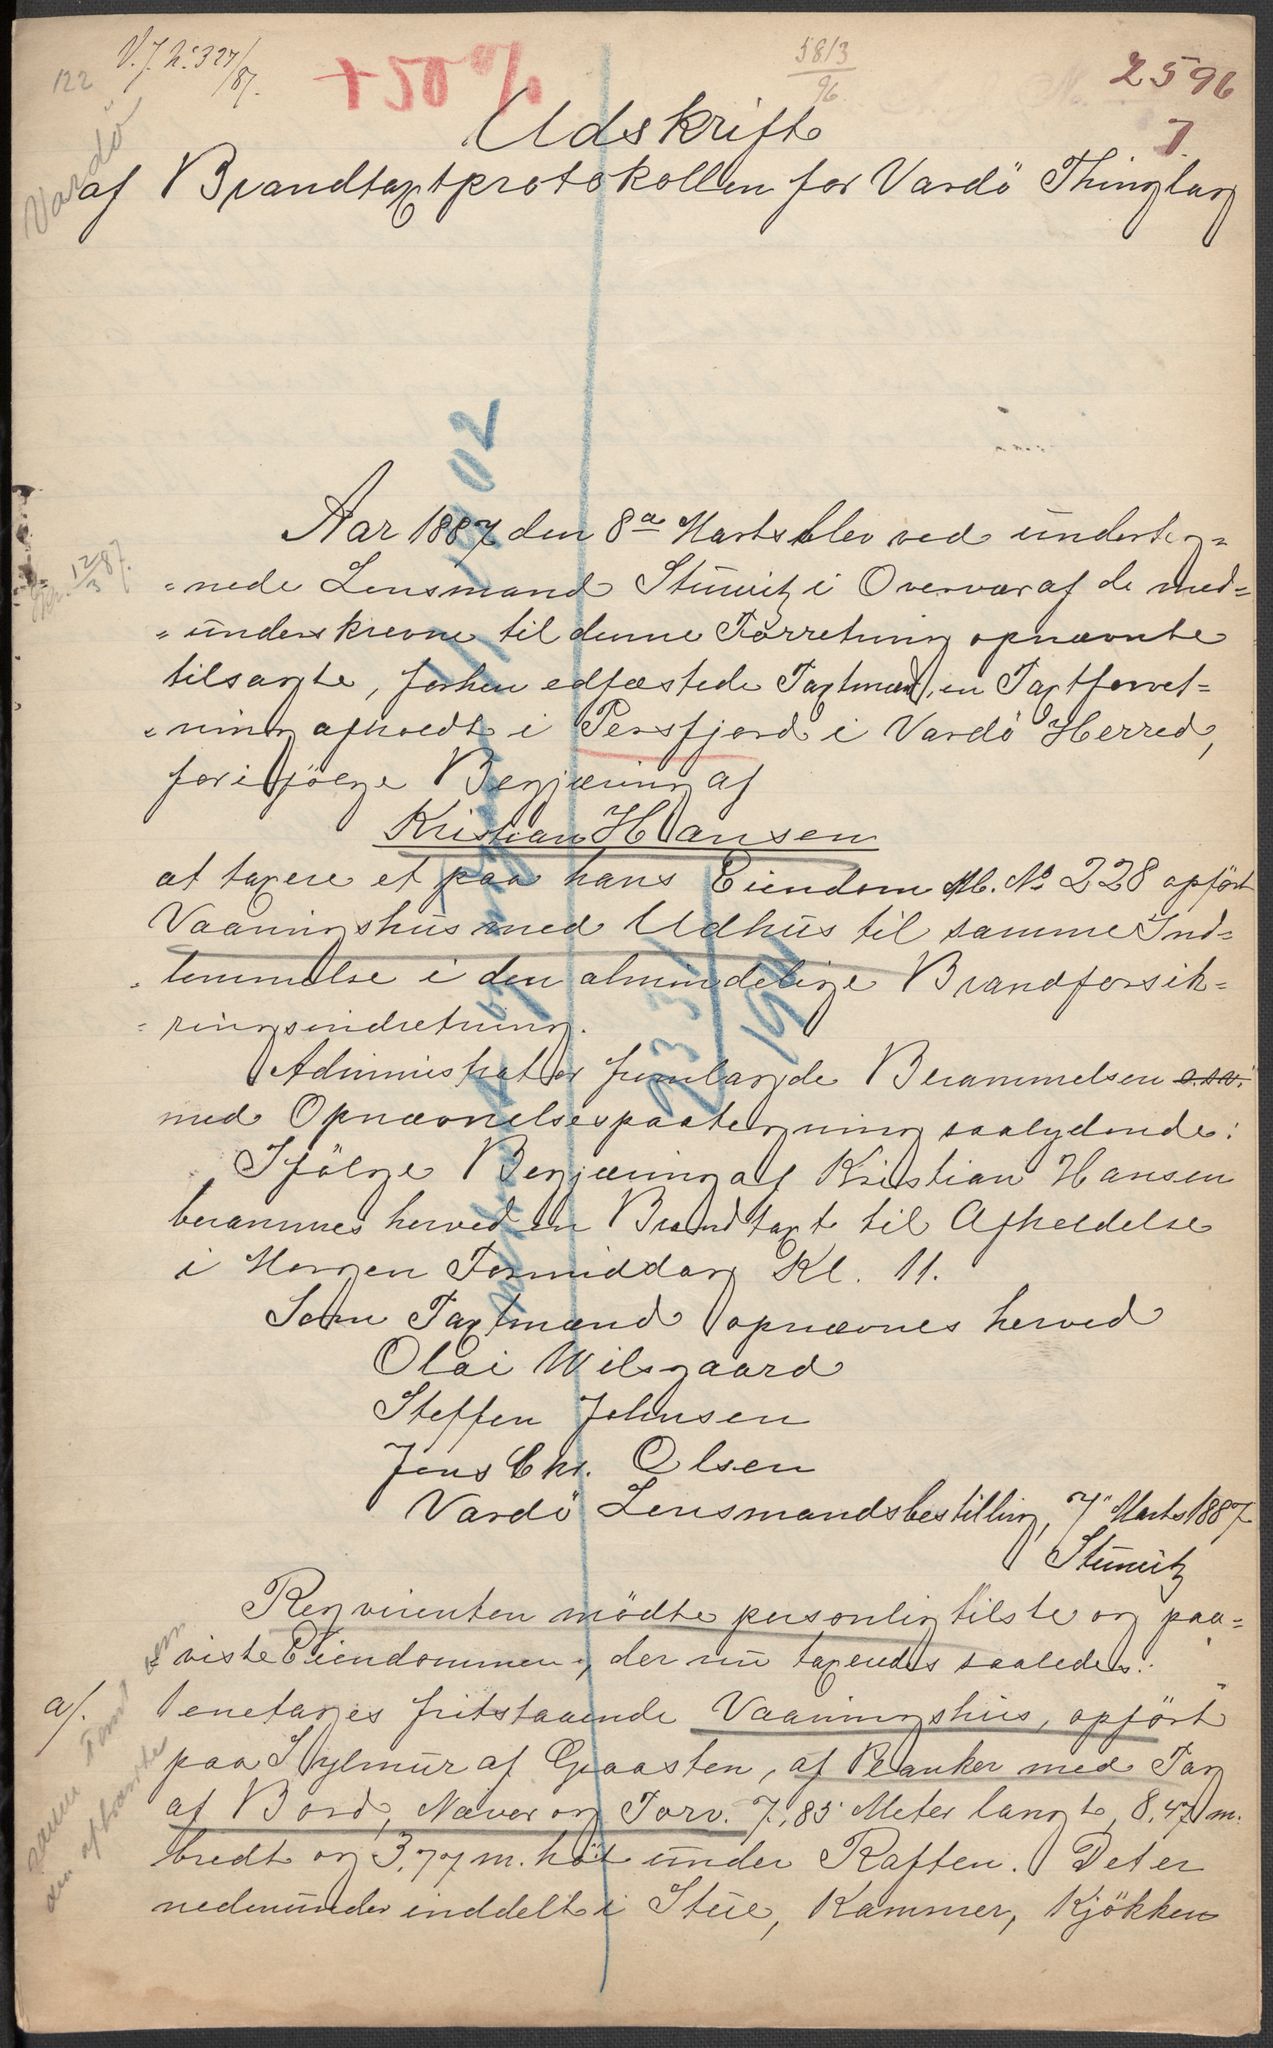 122
V. J. No 327/87.
+ 50 %
5813/96
2596
7.
Vardö
Udskrift
af Brandtaxtprotokollen for Vardö Thinglag
Aar 1887 den 8de Marts blev ved underteg=
=nede Lensmand Stuwitz i Overvær af de med=
=underskrevne til denne Forretning opnævnte
tilsagte, forhen edfæstede Taxtmænd, en Taxtforret=
=ning afholdt i Persfjord i Vardö Herred,
for ifölge Begjæring af
Kristian Hansen
at taxere et paa hans Eiendom M. No 228 opfört
Vaaningshus med Udhus til samme Ind=
=lemmelse i den almindelige Brandforsik=
=ringsindretning.
Administrator fremlagde Berammelsen o.s.v.
med Opnævnelsespaategning saalydende:
Ifölge Begjæring af Kristian Hansen
berammes herved en Brandtaxt til Afholdelse
i Morgen Formiddag Kl. 11.
Som Taxtmænd opnævnes herved
Olai Wilsgaard
Steffen Johnsen
Jens Chr. Olsen
Vardö Lensmandsbestilling, 7 Marts 1887
Stuwitz
Reqvirenten mödte personlig tilste og paa=
=viste Eiendommen, der nu taxeredes saaledes:
a/. enetages fritstaaende Vaaningshus, opfört
paa Sylmur af Graasten, af Planker med Tag
af Bord, Næver og Torv. 7,85 Meter langt, 8,47 m.
bredt og 3,77 m. höit under Raften. Det er
nedenunder inddelt i Stue, Kammer, Kjökken
12/3 87.
1902
23/3 19